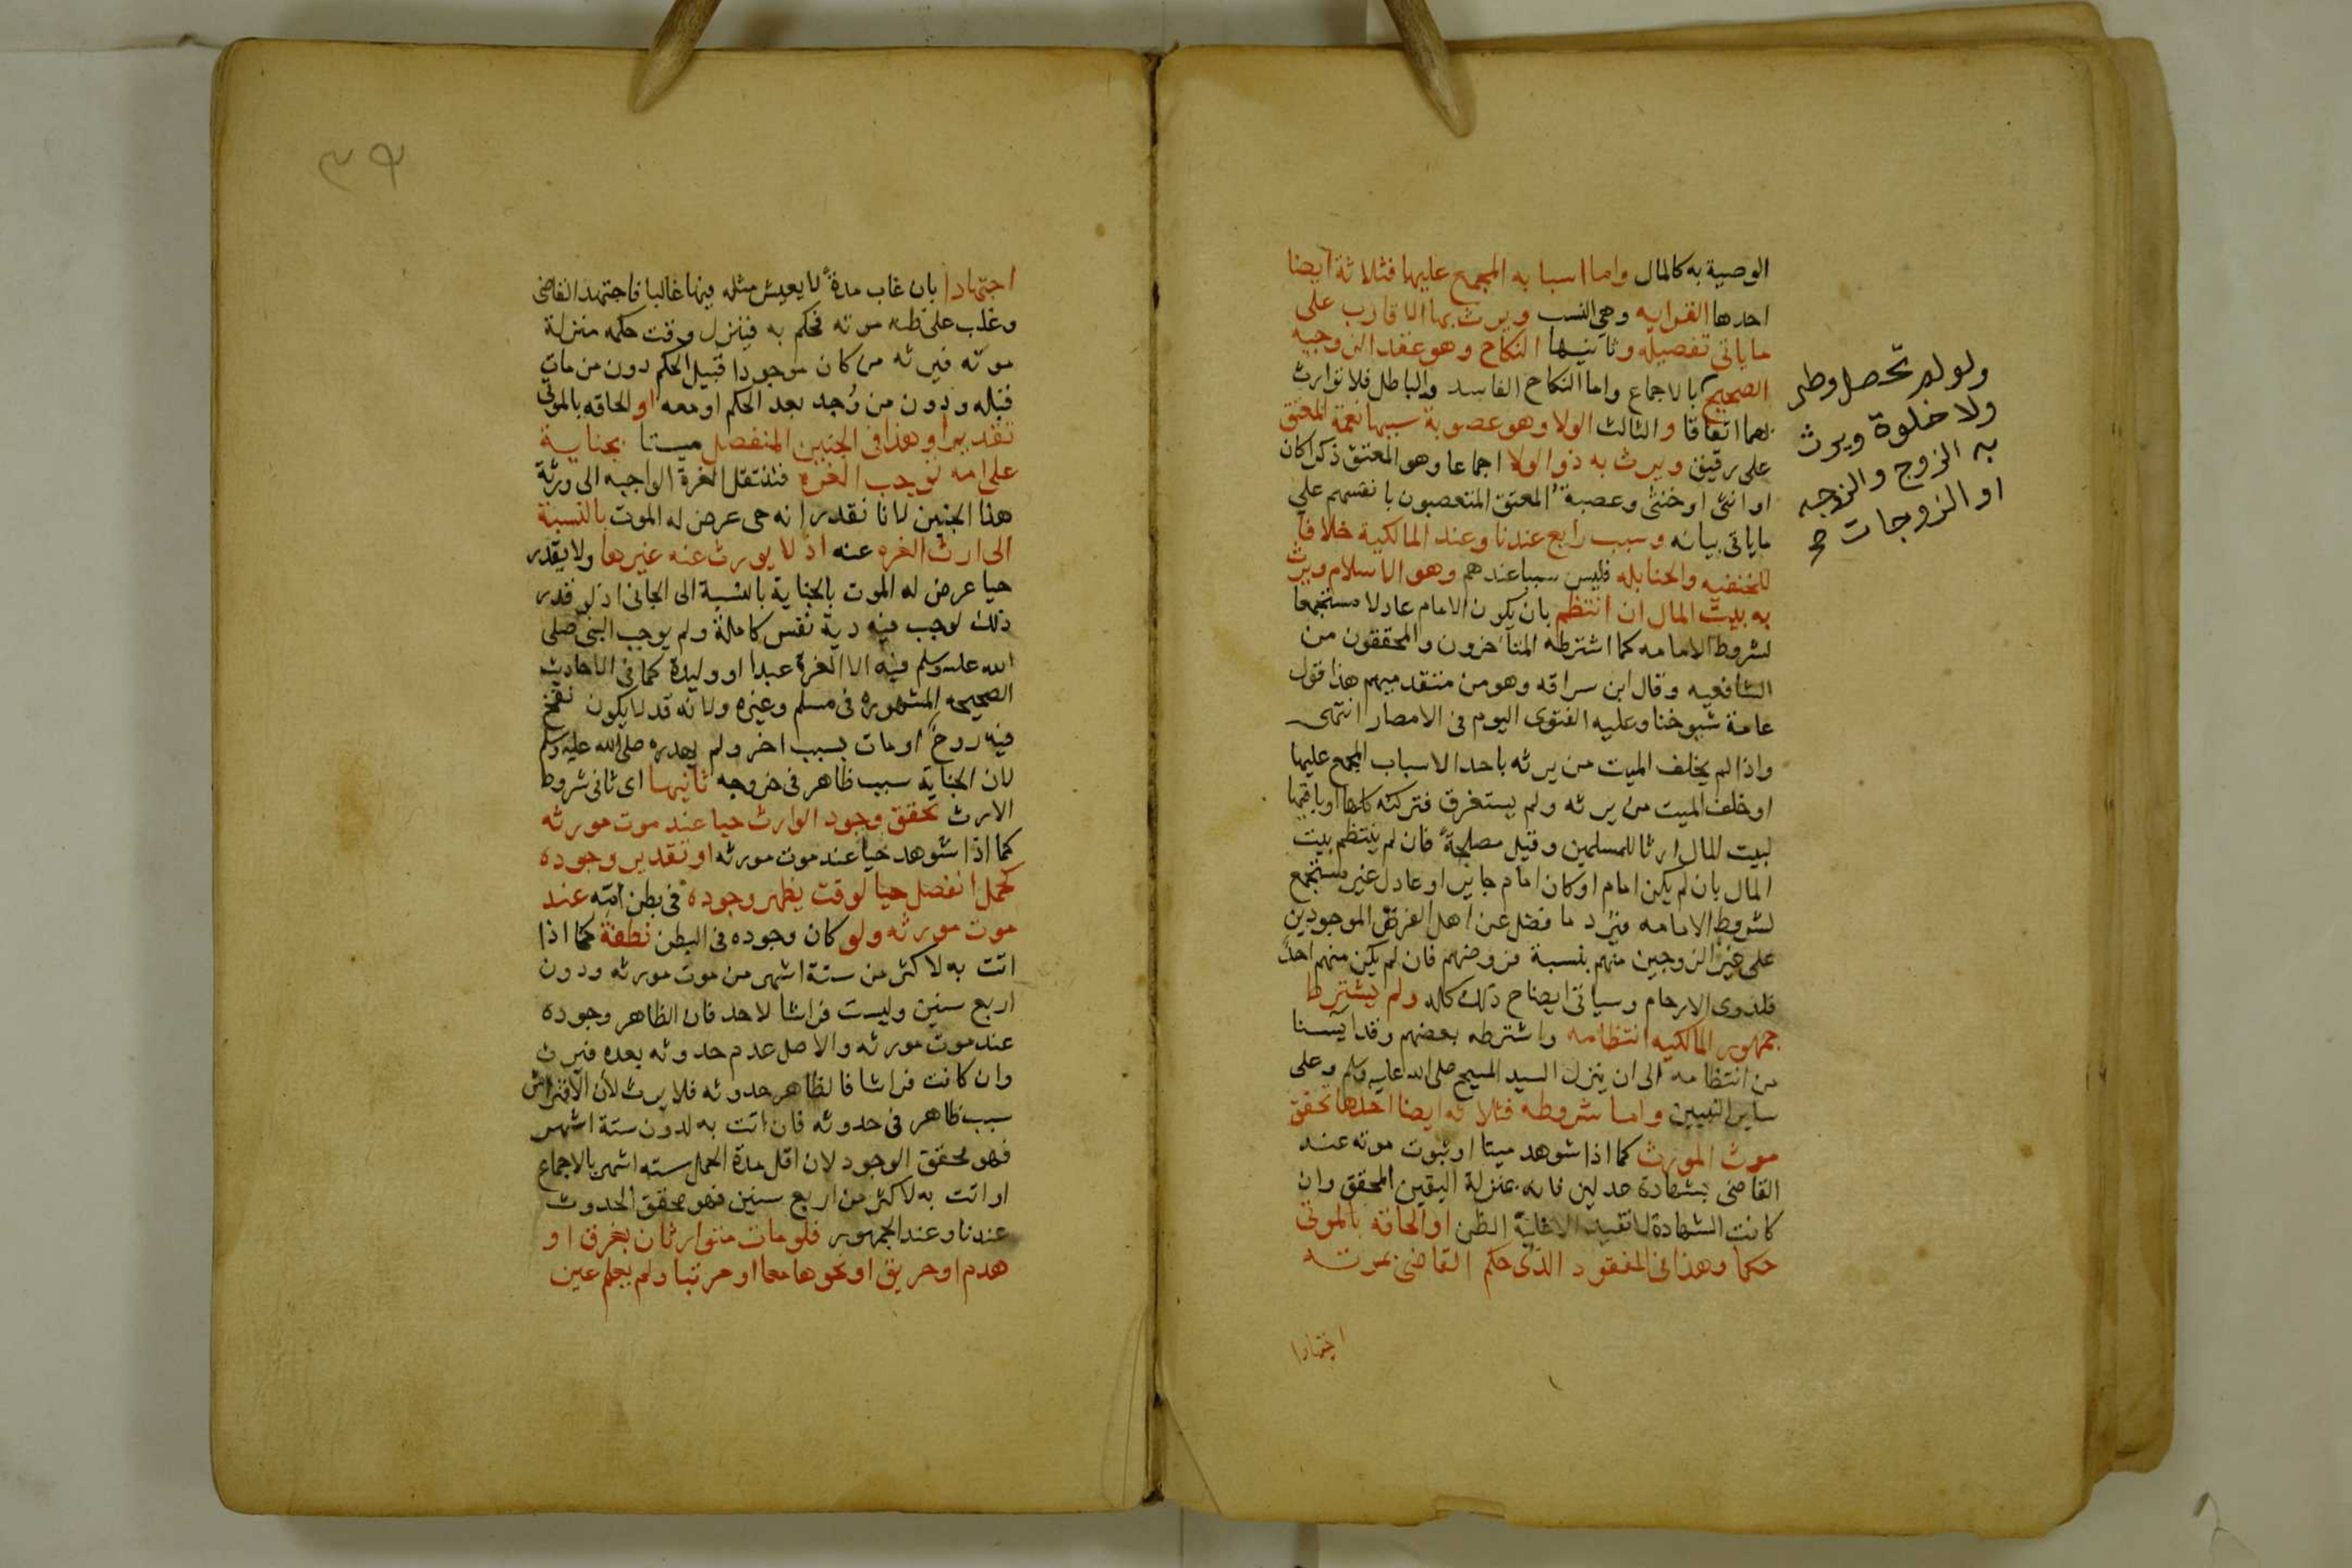 الوصية به كالمال واما اسبابه المجمع عليها فثلاثة ايضا
احدها القرابه وهي النسب ويرث بها الاقارب على
ما ياتي تفصيله وثانيها النكاح وهو عقد الزوجيه
الصحيح بالاجماع واما النكاح الفاسد والباطل فلا توارث
بهما اتفاقا والثالث الولا وهو عصوبة سببها نعمة المعتق
على رقيق ويرث به ذو الولا اجماعا وهو المعتق ذكرا كان
او انثى او خنثى وعصبة المعتق المتعصبون بانفسهم على
ما ياتي بيانه وسبب رابع عندنا وعند المالكية خلافا
للحنفيه والحنابله فليس سببا عندهم وهو الاسلام ويرث
به بيت المال ان انتظم بان يكون الامام عادلا مستجمعا
لشروط الامامه كما اشترطه المتأخرون والمحققون من
الشافعيه وقال ابن سراقه وهو من متقدميهم هذا قول
عامة شيوخنا وعليه الفتوى اليوم في الامصار انتهى
واذا لم يخلف الميت من يرثه باحد الاسباب المجمع عليها
او خلف الميت من يرثه ولم يستغرق فتركته كلها او باقيها
لبيت المال ارثا للمسلمين وقيل مصلحة فان لم ينتظم بيت
المال بان لم يكن امام او كان امام جاير او عادل غير مستجمع
لشروط الامامه فيرد ما فضل عن اهل الفرض الموجودين
على غير الزوجين منهم بنسبة فروضهم فان لم يكن منهم احد
فلذوي الارحام وسياتي ايضاح ذلك كله ولم يشترط
جمهور المالكيه انتظامه واشترطه بعضهم وقد ايسنا
من انتظامه الى ان ينزل السيد المسيح صلى الله عليه وسلم وعلى
ساير النبيين واما شروطه فثلاثه ايضا احدها تحقق
موت المورث كما اذا شوهد ميتا او ثبوت موته عند
القاضي بشهادة عدلين فانه بمنزلة اليقين المحقق وان
كانت الشهادة لا تفيد الا غلبة الظن او الحاقه بالموتى
حكما وهذا في المفقود الذي حكم القاضي بموته
اجتهادا
ولو لم تحصل وطى
ولا خلوة ويرث
به الزوج والزوجه
او الزوجات
٣٩
اجتهادا بان غاب مدة لا يعيش مثله فيها غالبا فاجتهد القاضي
وغلب على ظنه موته فحكم به فينزل وقت حكمه منزلة
موته فيرثه من كان موجودا قبيل الحكم دون من مات
قبله ودون من وُجد بعد الحكم او معه او الحاقه بالموتى
تقديرا وهذا في الجنين المنفصل ميتا بجناية
على امه توجب الغره فتنتقل الغرة الواجبه الى ورثة
هذا الجنين لانا نقدر انه حي عرض له الموت بالنسبة
الى ارث الغره عنه اذ لا يورث عنه غيرها ولا يقدر
حيا عرض له الموت بالجناية بالنسبة الى الجاني اذ لو قدر
ذلك لوجب فيه دية نفس كاملة ولم يوجب النبي صلى
الله عليه وسلم فيه الا الغرة عبدا او وليدة كما في الاحاديث
الصحيحه المشهوره في مسلم وغيره ولانه قد لا يكون نفخ
فيه روح او مات بسبب اخر ولم يهدره صلى الله عليه وسلم
لان الجناية سبب ظاهر في خروجه ثانيها اي ثاني شروط
الارث تحقق وجود الوارث حيا عند موت مورثه
كما اذا شوهد حيا عند موت مورثه او تقدير وجوده
كحمل انفصل حيا لوقت يظهر وجوده في بطن امه عند
موت مورثه ولو كان وجوده في البطن نطفة كما اذا
اتت به لاكثر من ستة اشهر من موت مورثه ودون
اربع سنين وليست فراشا لاحد فان الظاهر وجوده
عند موت مورثه والاصل عدم حدوثه بعده فيرث
وان كانت فراشا فالظاهر حدوثه فلا يرث لأن الافتراش
سبب ظاهر في حدوثه فان اتت به لدون ستة اشهر
فهو محقق الوجود لان اقل مدة الحمل سته اشهر بالاجماع
او اتت به لاكثر من اربع سنين فهو محقق الحدوث
عندنا وعند الجمهور فلو مات متوارثان بغرق او
هدم او حريق او نحوها معا او مرتبا ولم يعلم عين